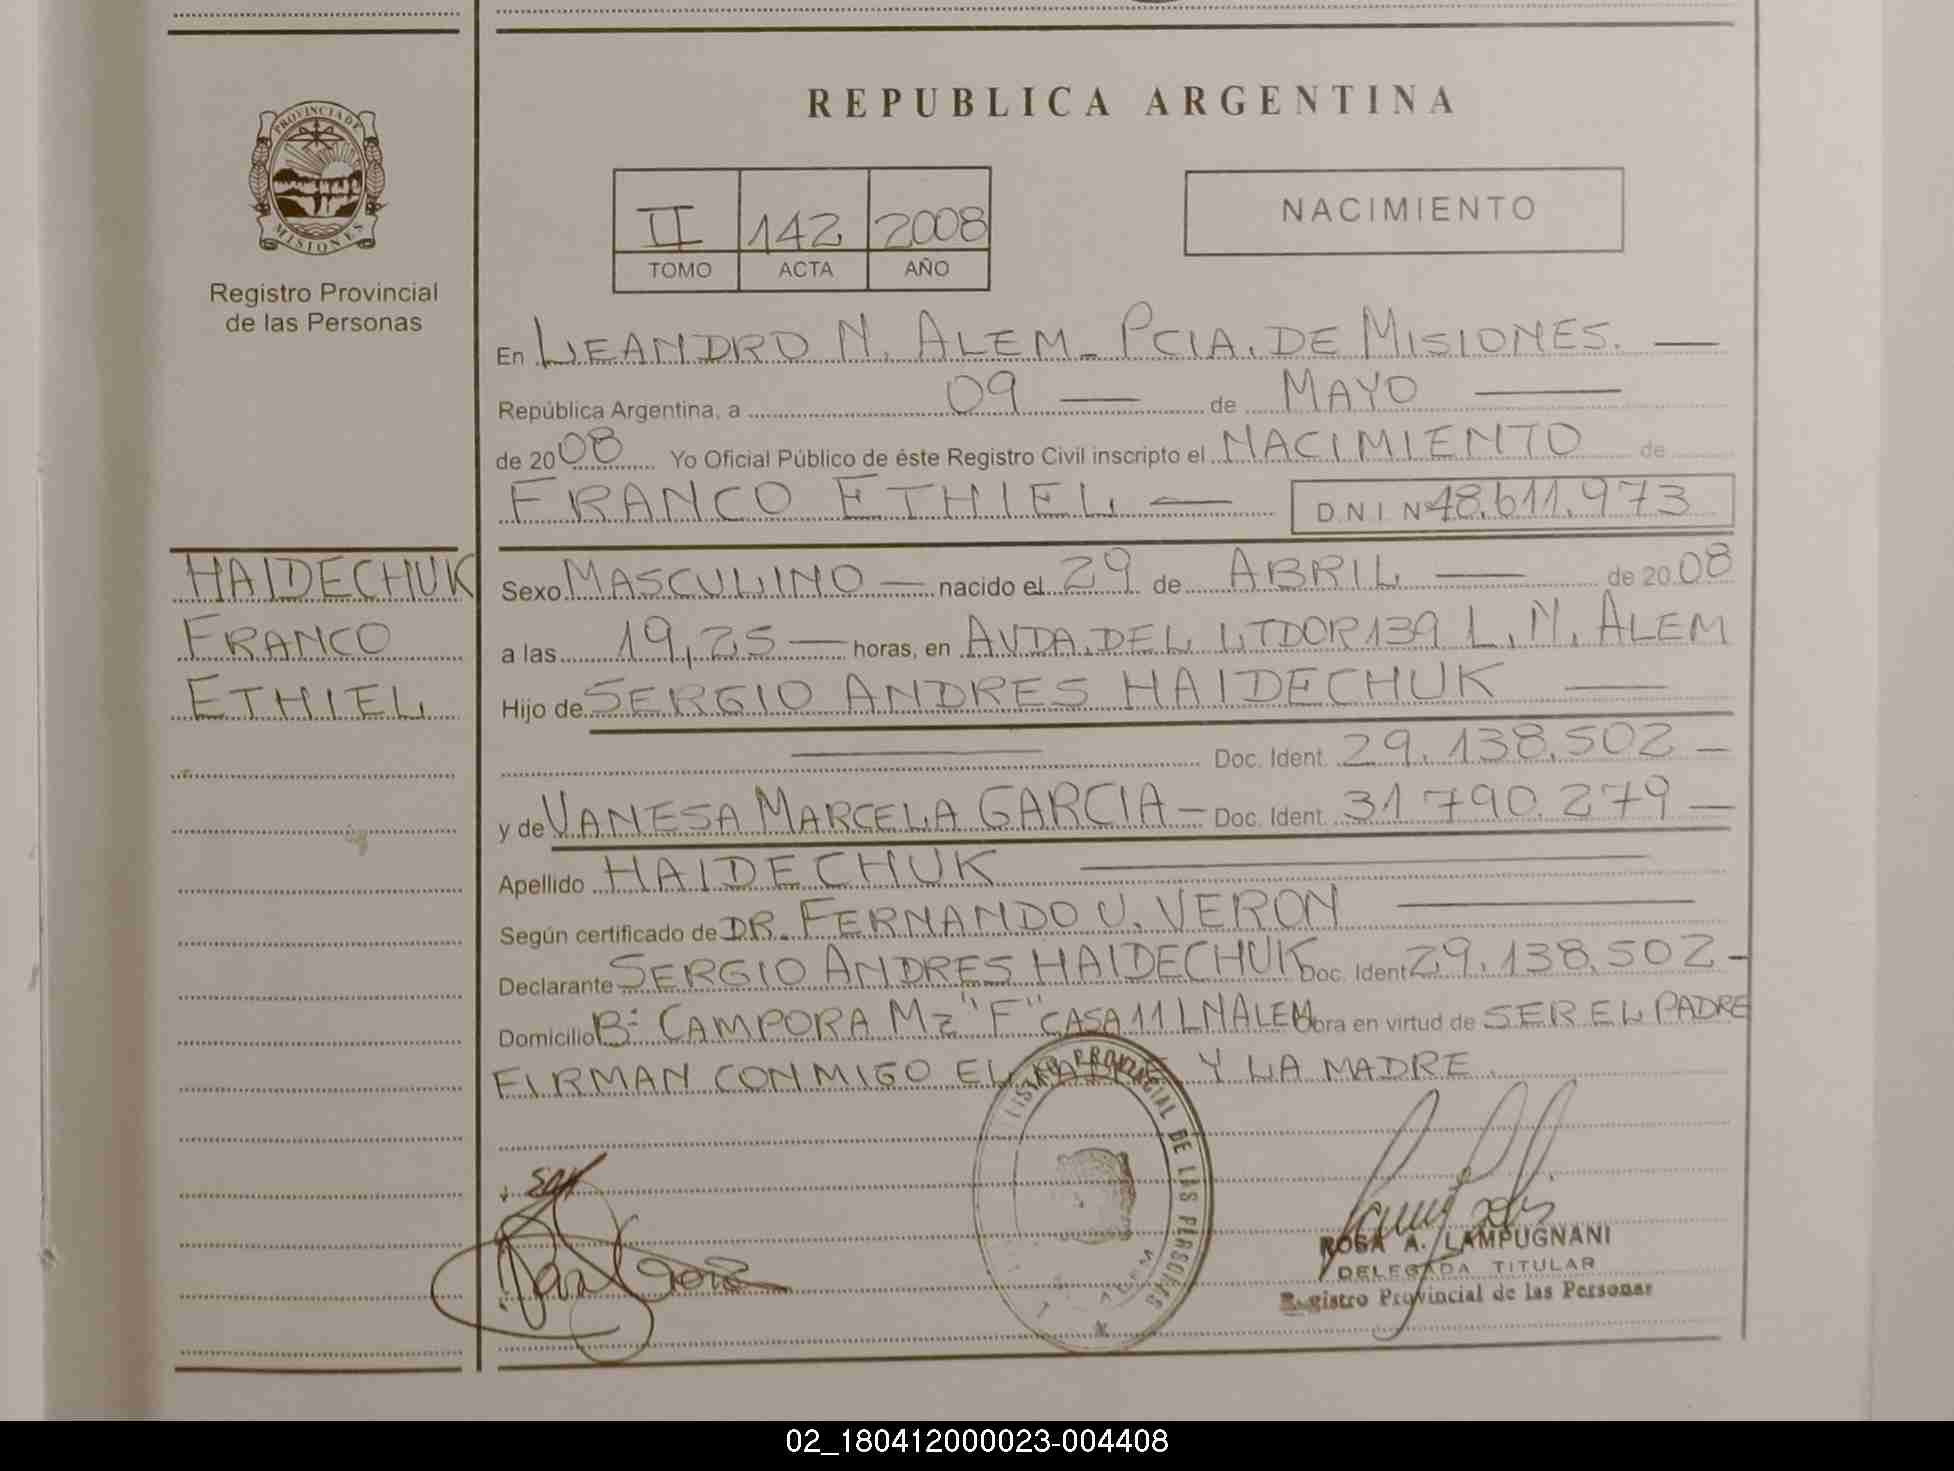 REPUBLICA ARGENTINA
PROVINCIA DE
MISIONES
Registro Provincial
de las Personas
II 142 2008
TOMO ACTA AÑO
NACIMIENTO
En LEANDRO N. ALEM - PCIA. DE MISIONES.
República Argentina, a 09 de MAYO
de 2008 Yo Oficial Público de éste Registro Civil inscripto el NACIMIENTO de
FRANCO ETHIEL D N I Nº 48.611.973
HAIDECHUK
FRANCO
ETHIEL
Sexo MASCULINO nacido el 29 de ABRIL de 2008
a las 19,25 horas, en AVDA. DEL LTDOR 139 L. N. ALEM
Hijo de SERGIO ANDRES HAIDECHUK
Doc. Ident. 29.138.502
y de VANESA MARCELA GARCIA Doc. Ident. 31 790.279
Apellido HAIDECHUK
Según certificado de DR. FERNANDO V. VERON
Declarante SERGIO ANDRES HAIDECHUK Doc. Ident 29.138.502
Domicilio Bº CAMPORA Mz "F" CASA 11 L N ALEM obra en virtud de SER EL PADRE
FIRMAN CONMIGO EL PADRE Y LA MADRE.
PROVINCIAL DE LAS PERSONAS
ALEM
ROSA A. LAMPUGNANI
DELEGADA TITULAR
Registro Provincial de las Personas
02_180412000023-004408